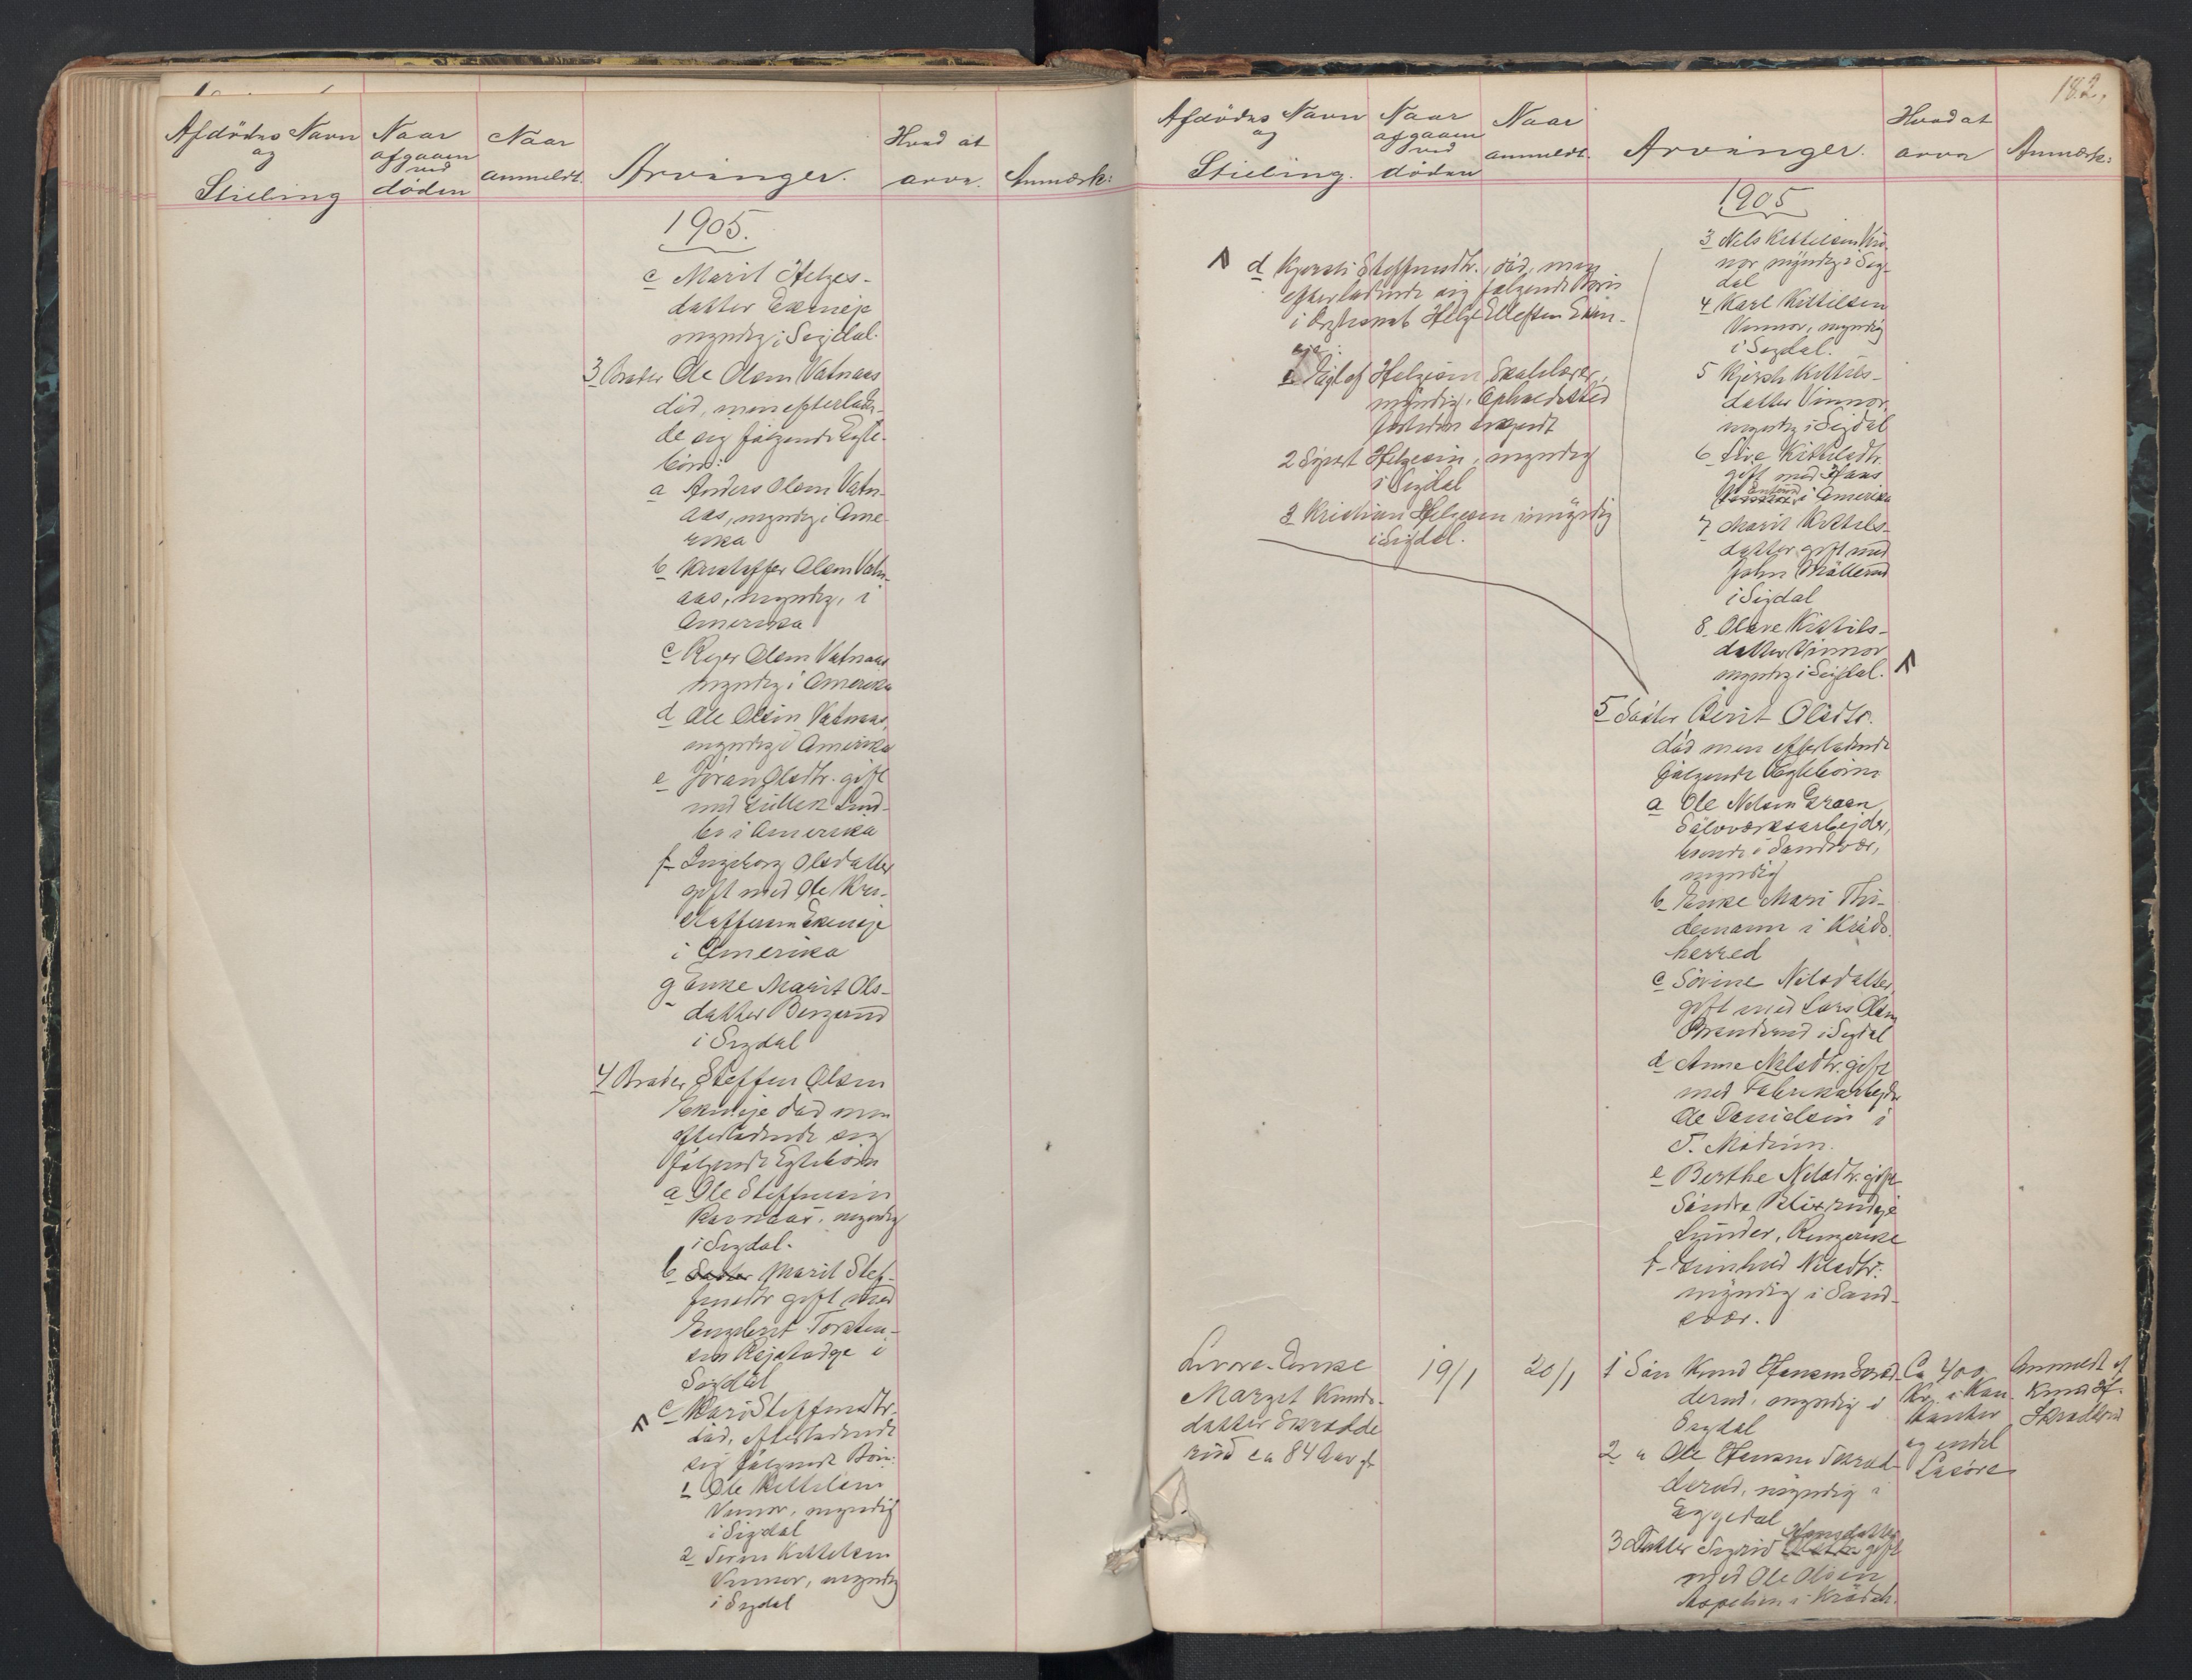 Afdödes Navn
og
Stilling
Naar
afgaaen
ved
döden
Naar
anmeldt.
Arvinger.
Hvad at
arve.
Anmærk:
1905.
c Marit Helges-
datter Ekeneje
myndig i Sigdal.
3 Broder Ole Olsen Vatnaas
död, men efterladen-
de sig følgende Egte-
börn:
a Anders Olsen Vatn-
aas, myndig i Ame-
rika
b Kristoffer Olsen Vatn-
aas, myndig, i
Amerika
c Roger Olsen Vatnaas
myndig i Amerika
d Ole Olsen Vatnaas,
myndig i Amerika
e Jöran Olsdtr. gift
med Gullek Lind-
bo i Amerika
f Ingeborg Olsdatter
gift med Ole Kri-
stoffersen Ekeneje
i Amerika
g Enke Marit Ols-
datter Bergerud
i Sigdal
4 Broder Steffen Olsen
Ekeneje död men
efterladende sig
følgende Egtebörn
a Ole Steffensen
Ravnaas, myndig
i Sigdal.
b Marit Stef-
fensdtr gift med
Engebrit Torsten-
sen i
Sigdal
c Kari Steffensdtr.
död, efterladende
sig følgende Börn:
1 Ole Kittilsen
Vinnor, myndig
i Sigdal
2 Kittilsen
Vinnor, myndig
i Sigdal
182.
Afdödes Navn
og
Stilling.
Naar
afgaaen
ved
döden
Naar
anmeldt.
Arvinger.
Hvad at
arve
Anmærk:
1905
d Kjersti Steffensdtr., död, men
efterladende sig følgende Börn
i Ægteskab Helge Ellefsen Eken-
eje:
1 Helgesen, Skolelærer,
myndig, Opholdssted
forøvrigt ukjendt
2 Sigvart Helgesen, myndig
i Sigdal
3 Kristian Helgesen umyndig
i Sigdal.
3 Nels Kittelsen Vin-
nor myndig i Sig-
dal
4 Karl Kittilsen
Vinnor, myndig
i Sigdal.
5 Kjersti Kittils-
datter Vinnor,
myndig i Sigdal
6 Live Kittilsdtr.
gift med Hans
i Amerika
7 Marit Kittils-
datter gift med
John Möllerud
i Sigdal
8 Olave Kittils-
datter Vinnor
myndig i Sigdal.
5 Söster Berit Olsdtr.
död men efterladende
følgende Egtebörn
a Ole Nelsen Graen,
Sölvværksarbejder,
boende i Sandsvær,
myndig
b Enke Mari Thi-
demann i Kröds-
herred
c Sörine Nilsdatter,
gift med Lars Olsen
Brenderud i Sigdal
d Anne Nelsdtr. gift
med Fabrikarbejder
Ole Danielsen i
T. Modum.
e Berthe Nelsdtr. gift
Söndre Blixrudeje
Lunder, Ringerike
f Gunhild Nilsdtr.
myndig i Sand-
svær.
Livöre-Enke
Margit Knuds-
datter Skradde
rud ca 84 Aar gl.
19/1
20/1
1 Sön Knud Hansen Skrad-
derud, myndig i
Sigdal
2 " Ole Hansen Skrad-
derud, myndig i
Eggedal
3 Datter Sigrid Hansdatter gift
med Ole Olsen
i Krödsh.
Ca 400
Kr. i Kon-
tanter
og endel
Lösöre
Anmeldt af
Knud H.
Skradderud